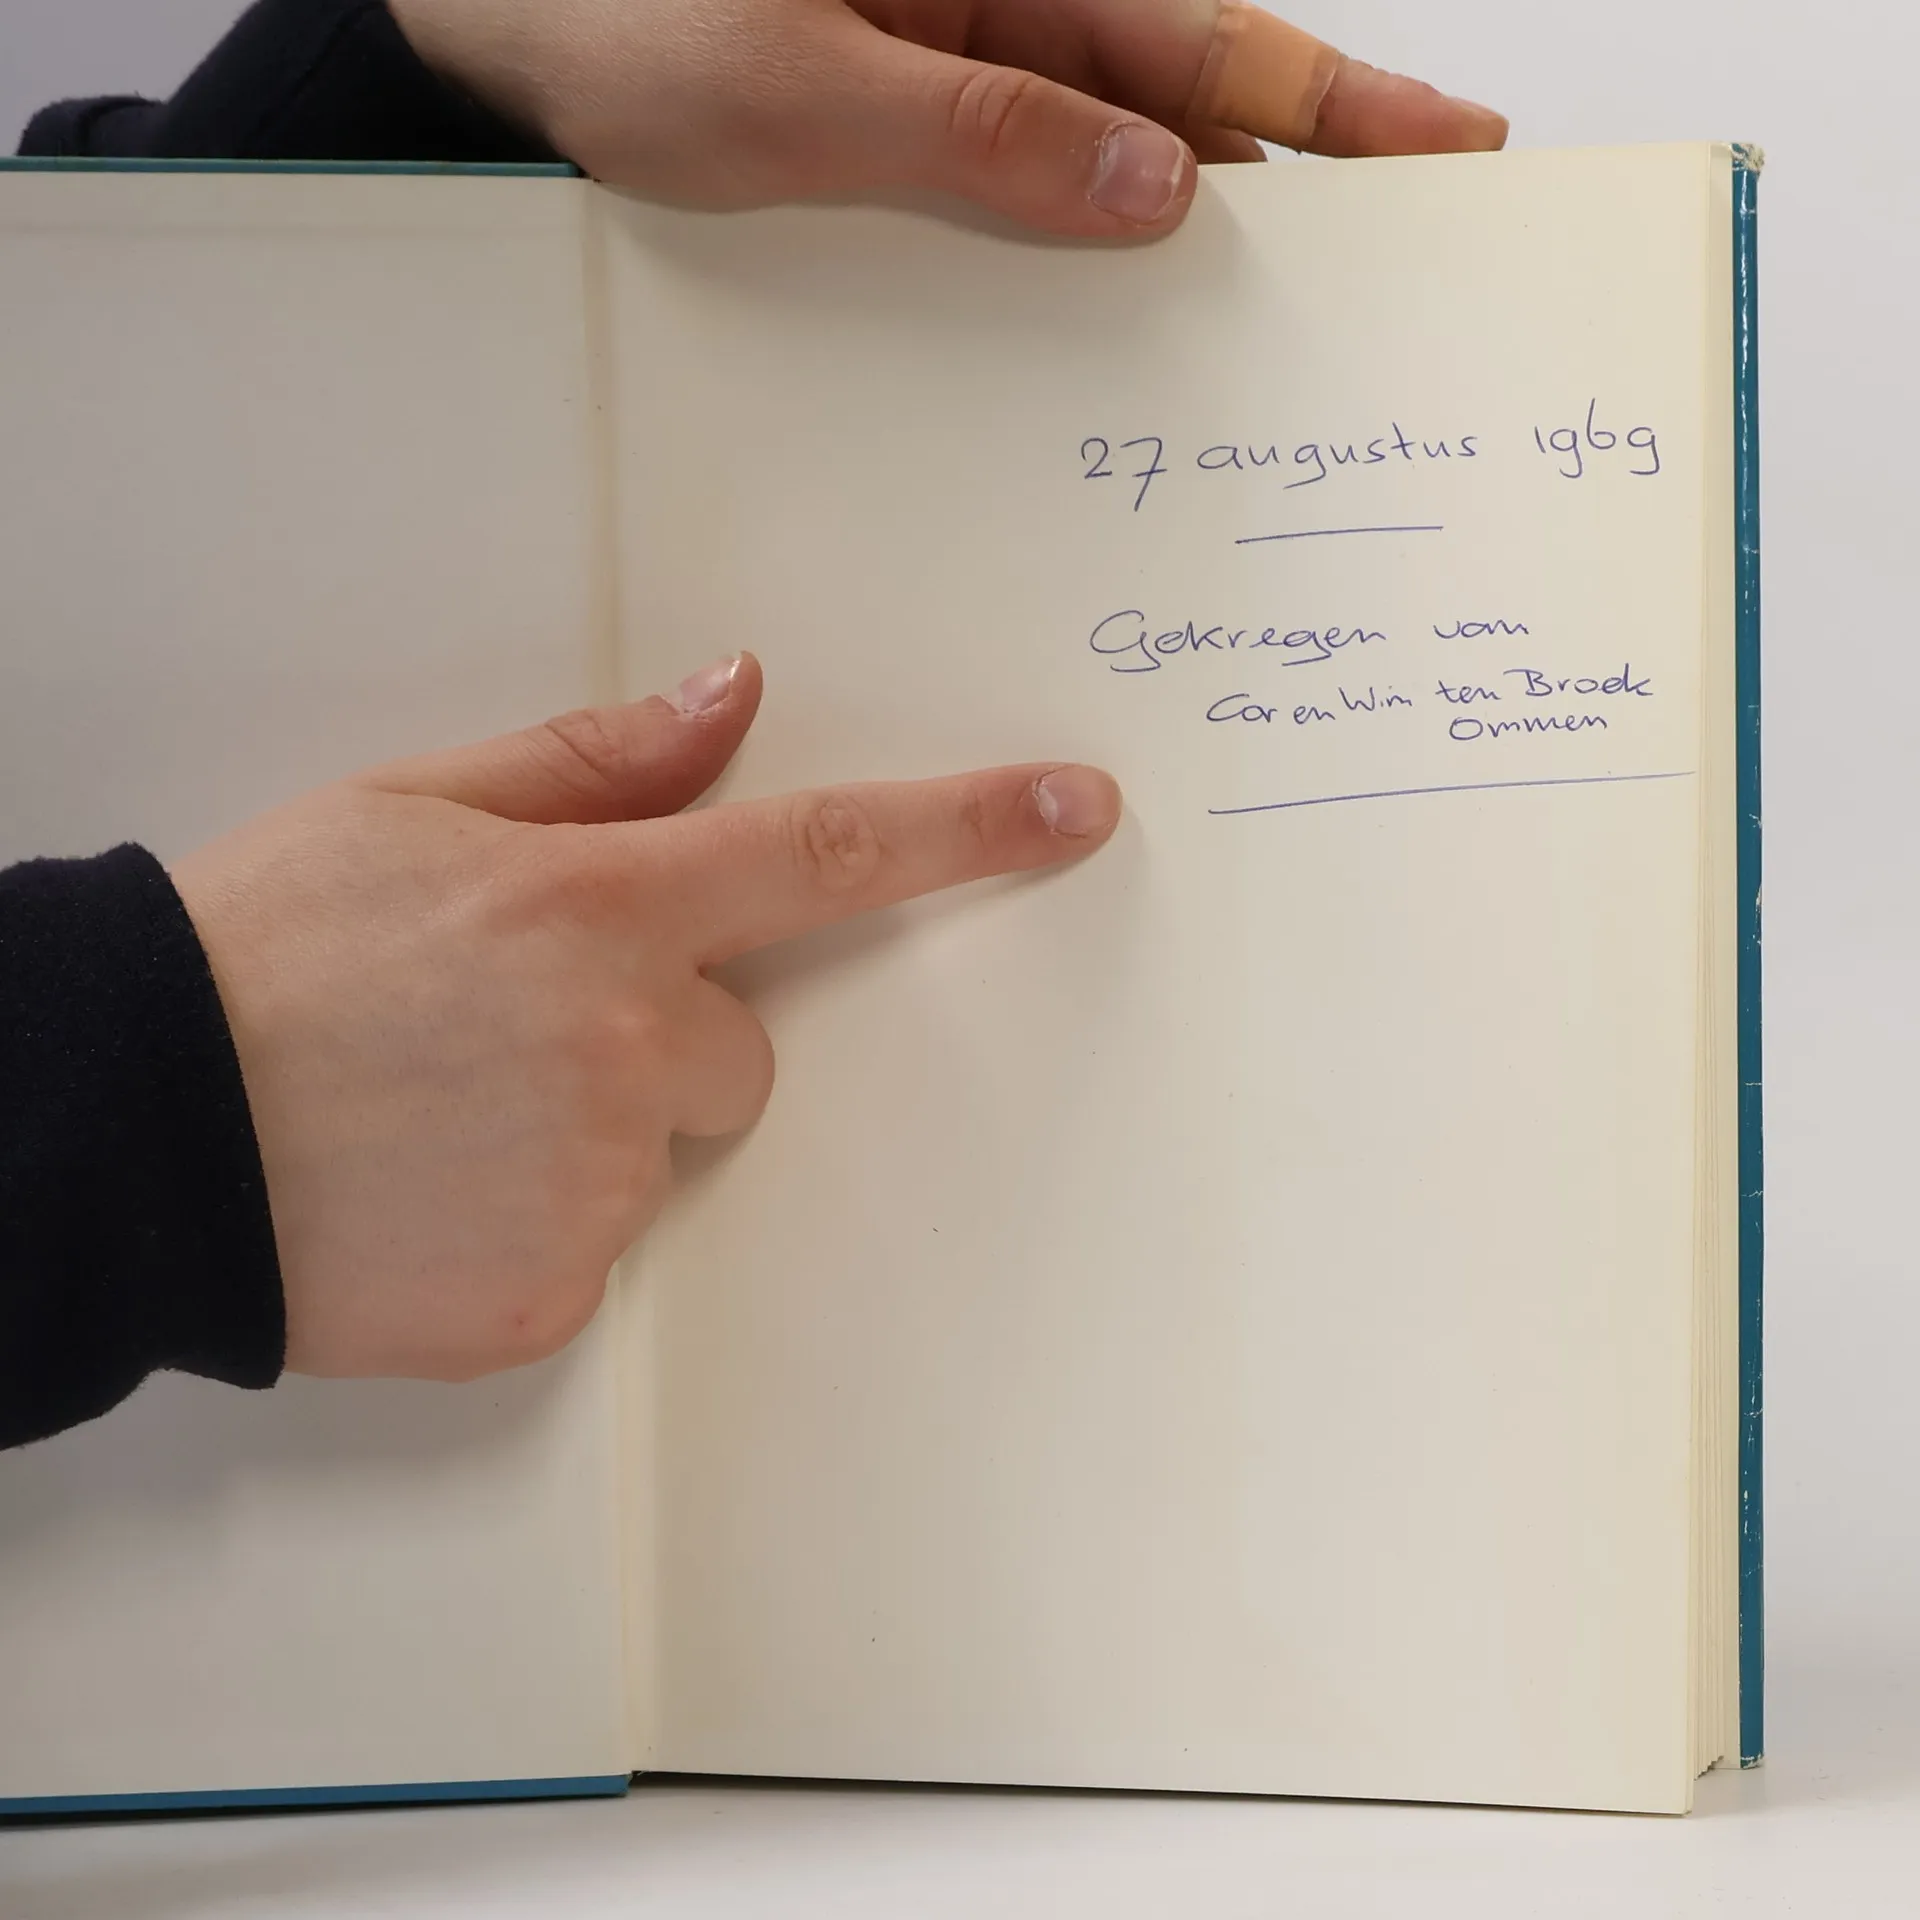 27 augustus 1969
Gekregen van
Cor en Wim ten Broek
Ommen